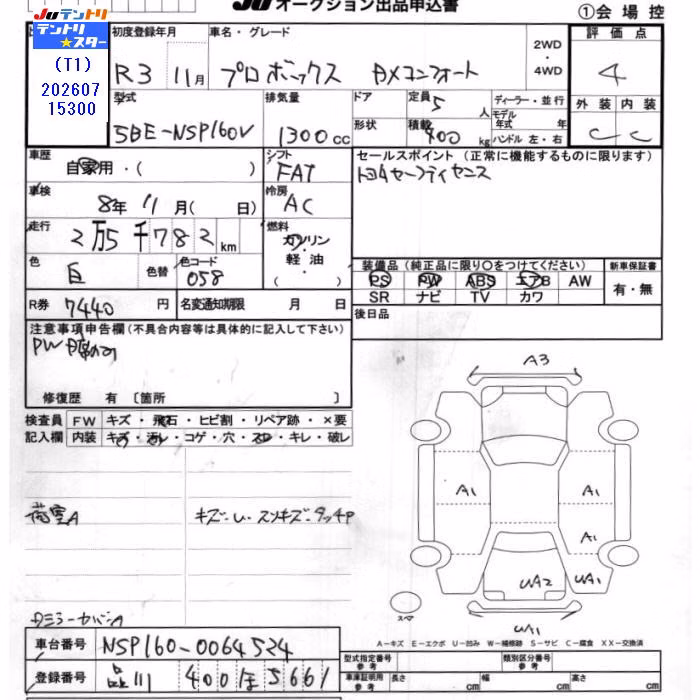 JU オークション出品申込書
①会場控
JUテントリ
テントリ★スター
(T1)
202607
15300
初度登録年月
R3 11月
車名・グレード
プロボックス DXコンフォート
2WD
・
4WD
評価点
4
外装 内装
C C
型式
5BE-NSP160V
排気量
1300cc
ドア
定員 5人
形状
積載 400kg
ディーラー・並行
モデル年式 年
ハンドル 左・右
車歴
自家用・( )
シフト
FAT
セールスポイント (正常に機能するものに限ります)
トヨタセーフティセンス
車検
8年 11月( 日)
冷房
AC
走行
2万5千782km
燃料
ガソリン
軽油
・( )
色
白
色替
色コード
058
装備品 (純正品に限り○をつけてください)
PS PW ABS エアB AW
SR ナビ TV カワ
新車保証書
有・無
R券 7440円
名変通知期限 月 日
後日品
注意事項申告欄(不具合内容等は具体的に記入して下さい)
修復歴 有 〔箇所 〕
検査員
記入欄
FW キズ・飛石・ヒビ割・リペア跡・×要
内装 キズ・汚レ・コゲ・穴・スレ・キレ・破レ
荷室A
A3
A1
A1
A1
UA2
UA1
UA1
スペア
A-キズ E-エクボ U-凹み W-補修跡 S-サビ C-腐食 XX-交換済
車台番号 NSP160-0064524
登録番号 品川 400 ほ 5661
型式指定番号
参考
類別区分番号
参考
車庫証明用
参考
長さ cm 幅 cm 高さ cm